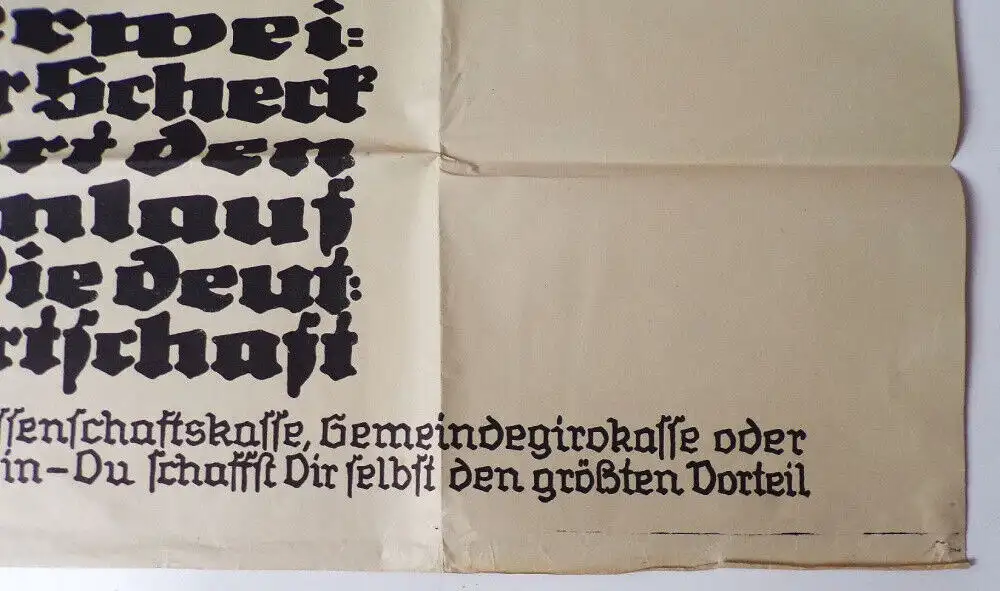 erwei=
r Scheck
ert den
nlauf
Die deut=
rtſchaft
ſſenſchaftskaſſe, Gemeindegirokaſſe oder
in – Du ſchaffſt Dir ſelbſt den größten Vorteil